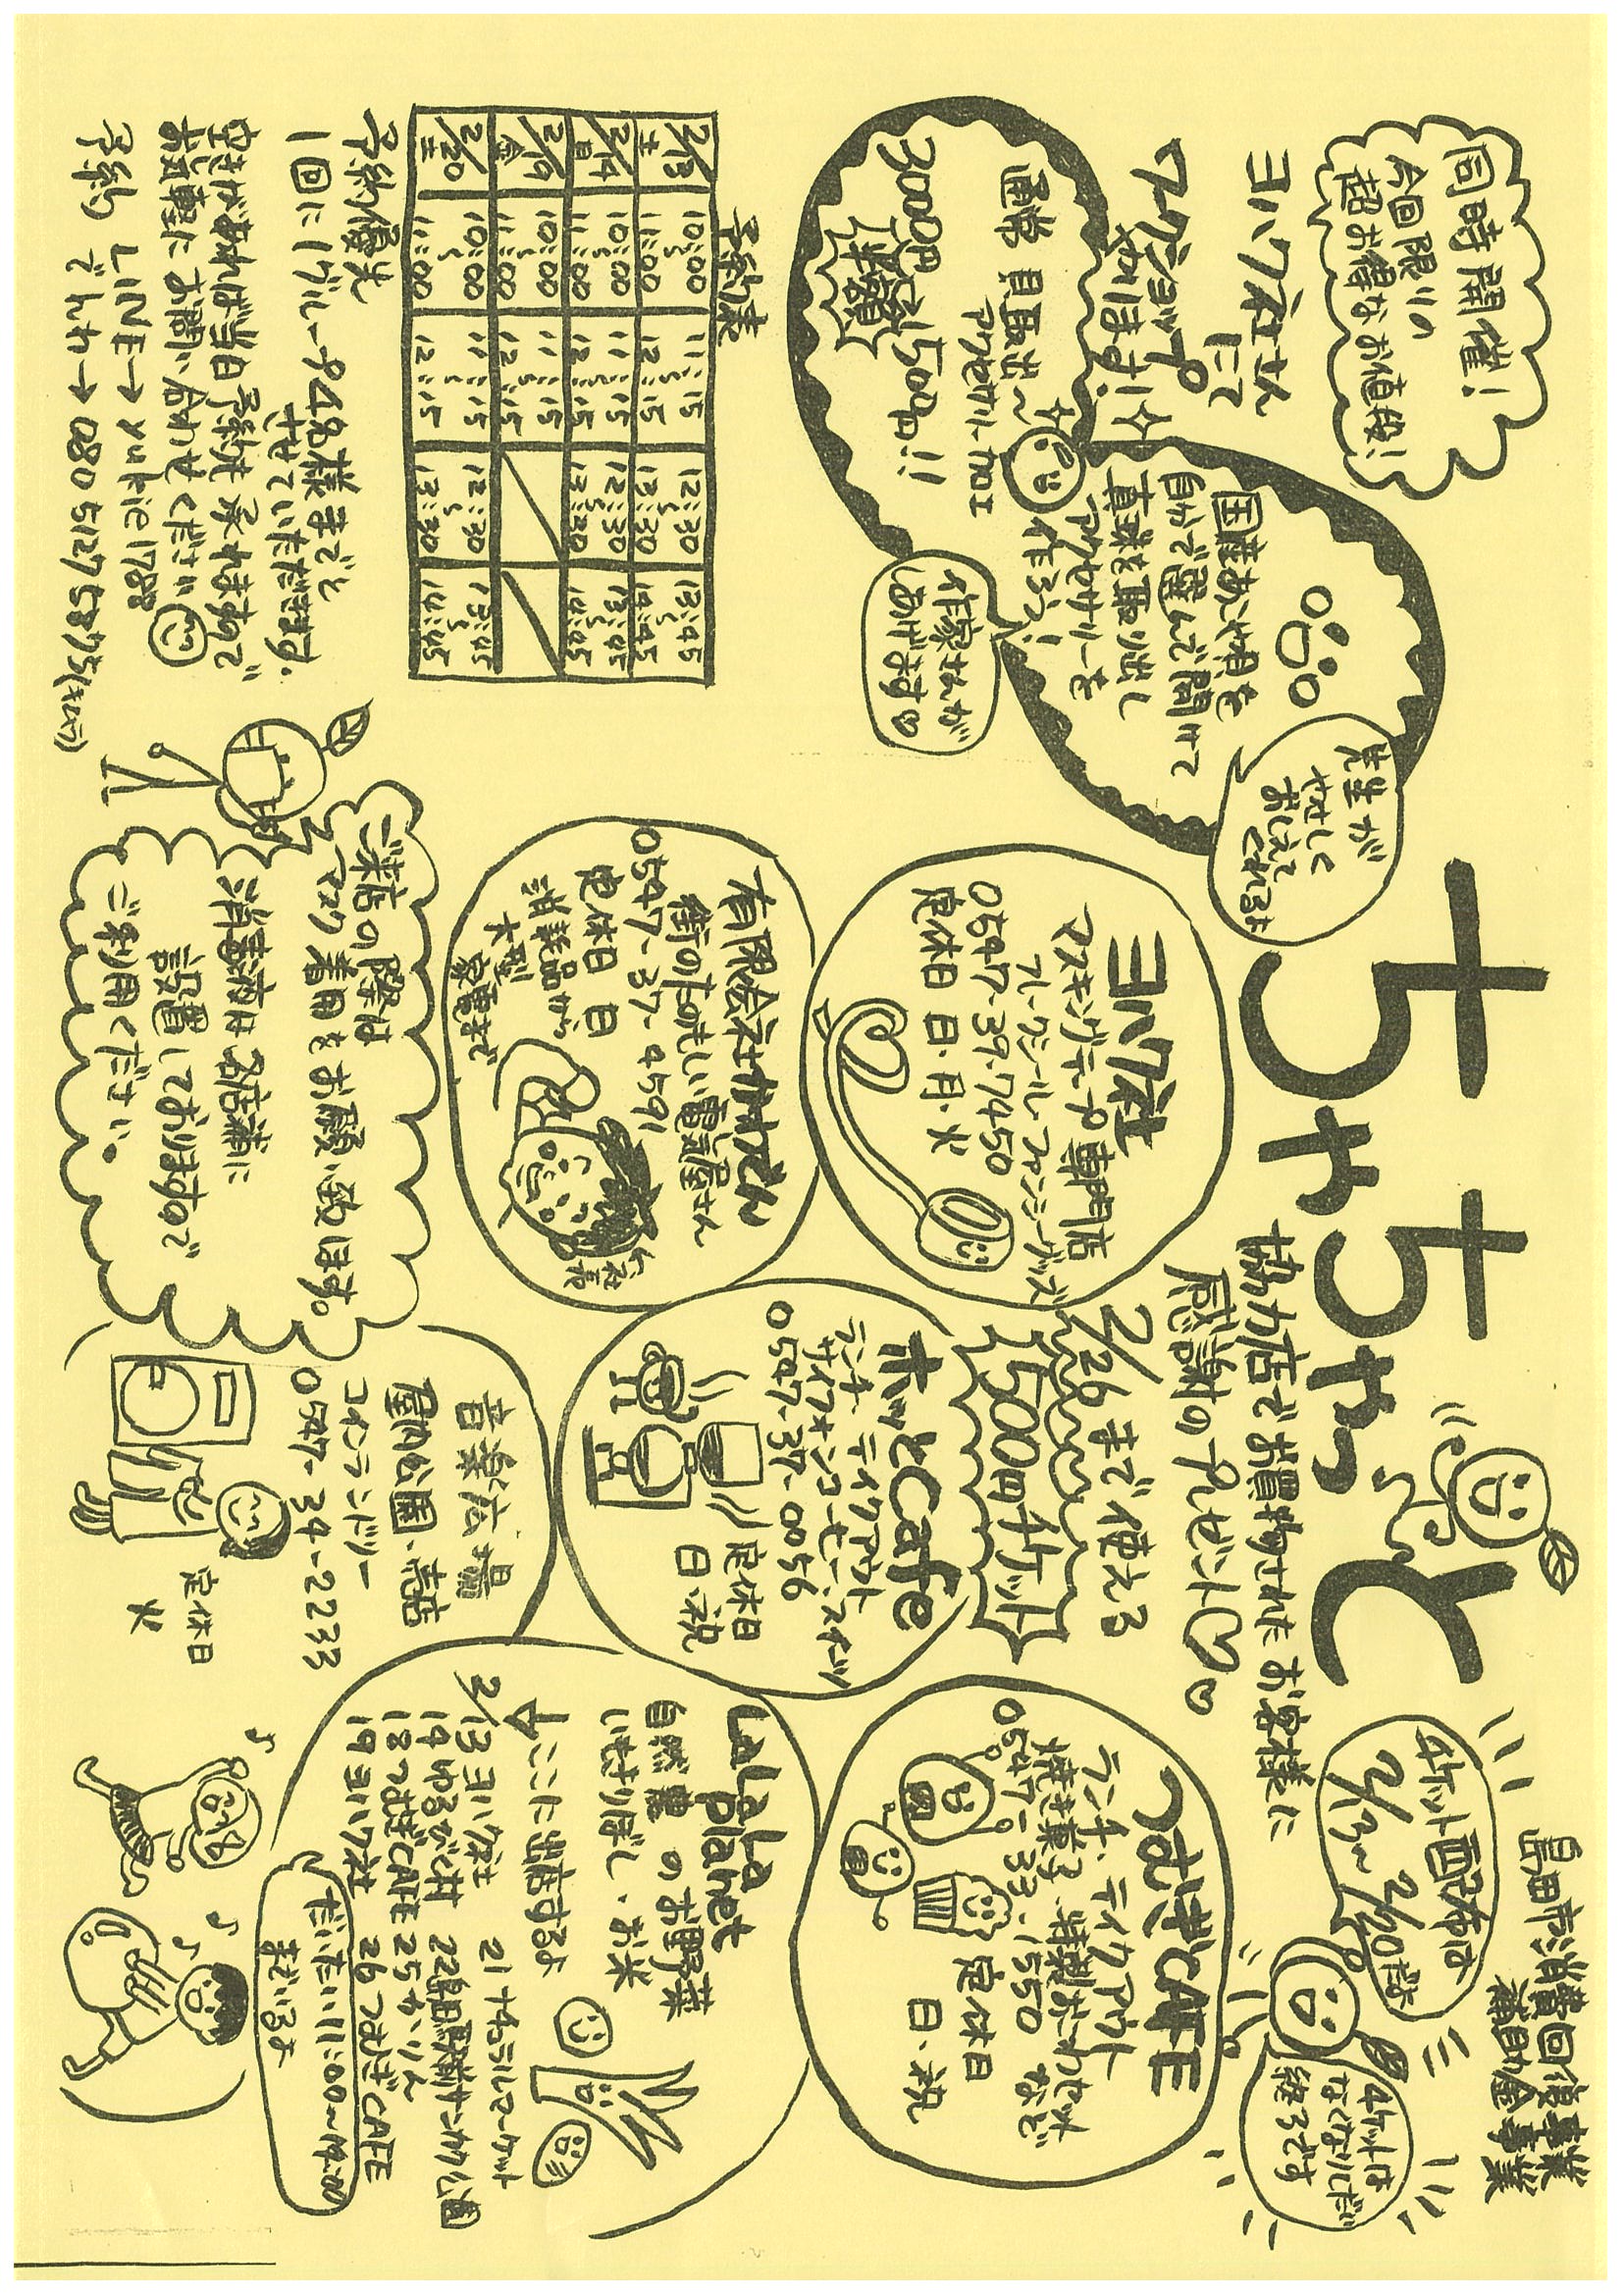 同時開催!
今回限りの
超お得なお値段!
ヨハク社さん
にて
ワークショップ
やります!
国産あこや貝を
自分で選んで開けて
真珠を取り出し
アクセサリーを
作ろう!
先生が
やさしく
おしえて
くれるよ
通常 貝取出し~
アクセサリー加工
3000円→1500円!!
半額
作家さんが
あげます
予約表
2/13 土 10:00~11:00 11:15~12:15 12:30~13:30 13:45~14:45
2/14 日 10:00~11:00 11:15~12:15 12:30~13:30 13:45~14:45
2/19 金 10:00~11:00 11:15~12:15
2/20 土 10:00~11:00 11:15~12:15 12:30~13:30 13:45~14:45
予約優先
1回に1グループ4名様までと
させていただきます.
空きがあれば当日予約も承れますので
お気軽にお問い合わせください
予約 LINE→yukie1788
でんわ→08051275875
十ちゃ十ちゃっと
島田市消費回復事業
補助金事業
協力店でお買物された お客様に
感謝のプレゼント
チケット配布は
2/13~2/20だよ
チケットは
なくなりしだい
終了です
2/26まで使える
500円チケット
ヨハク社
マスキングテープ専門店
フレークシール ファンシーグッズ
0547-39-7450
定休日 日・月・火
有限会社かわでん
街のたのもしい電気屋さん
0547-37-4591
定休日 日
消耗品から
大型
家電まで
社長
ホッとCafe
ランチ テイクアウト
サイフォンコーヒー、スイーツ
0547-37-0056
定休日
日・祝
つむぎCAFE
ランチ、テイクアウト
焼き菓子、特製おこわセット
など
0547-33-1550
定休日
日・祝
LaLaLa
planet
自然農のお野菜
いもきりぼし・お米
ここに出店するよ
2/13 ヨハク社
14 ゆるびく村
18 つむぎCAFE
19 ヨハク社
25 かりん
26 つむぎCAFE
だいたい11:00~14:00
までいるよ
音楽広場
屋内公園・売店
コインランドリー
0547-34-2233
定休日
火
ご来店の際は
マスク着用をお願い致します。
消毒液は各店舗に
設置しておりますので
ご利用ください。